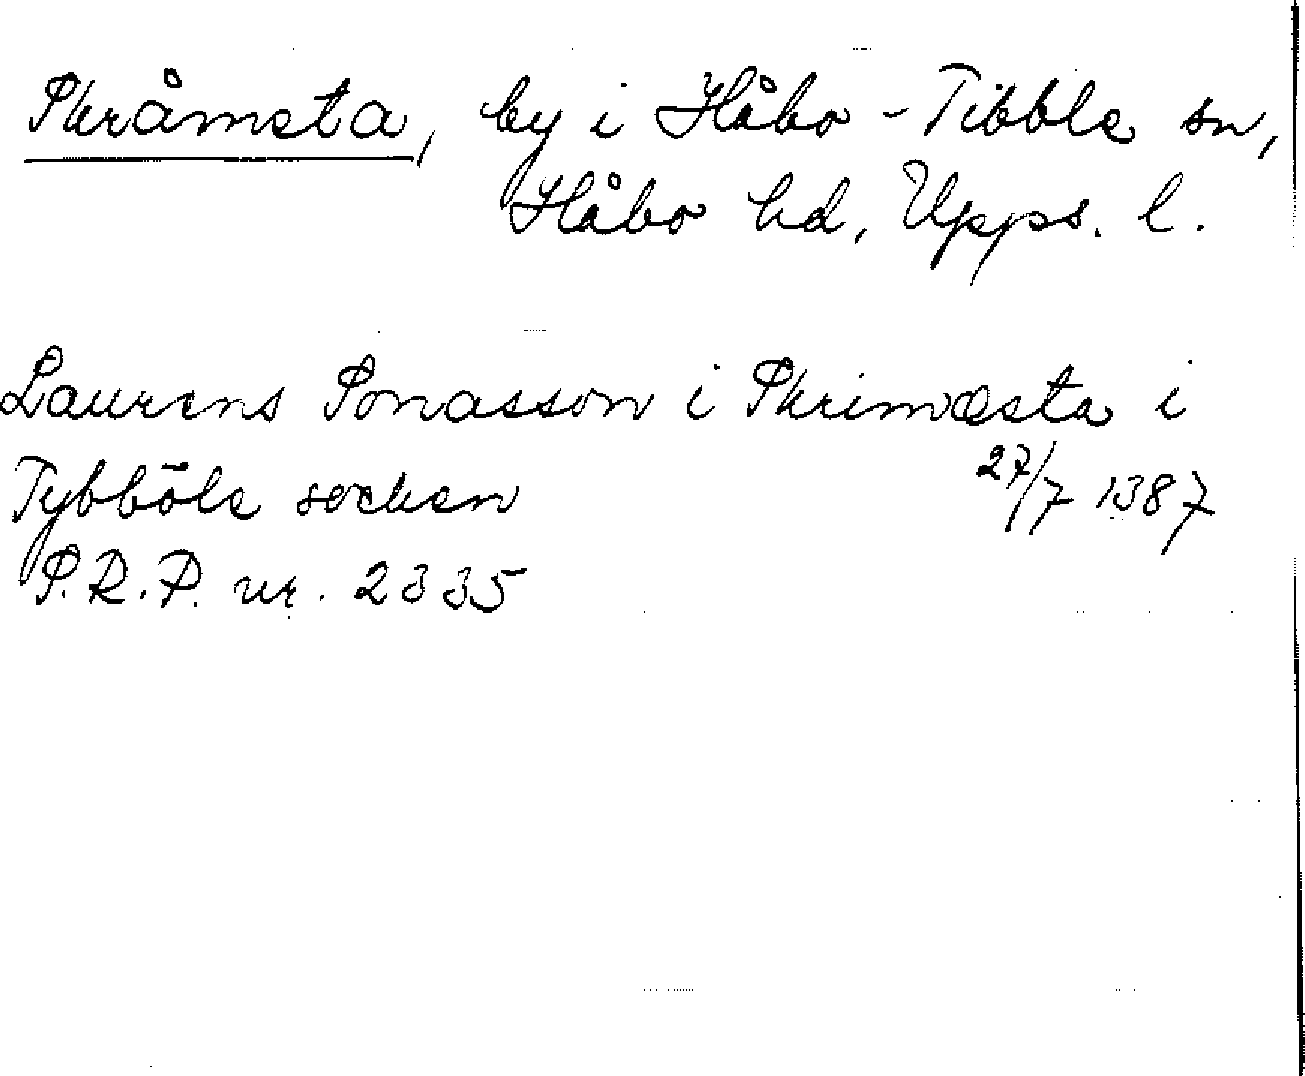 Skråmsta, by i Håbo-Tibble sn,
Håbo hd, Upps. l.
Laurens Jonasson i Skrimæsta i
Tybböle socken 27/7 1387
P.R.P. nr. 2335